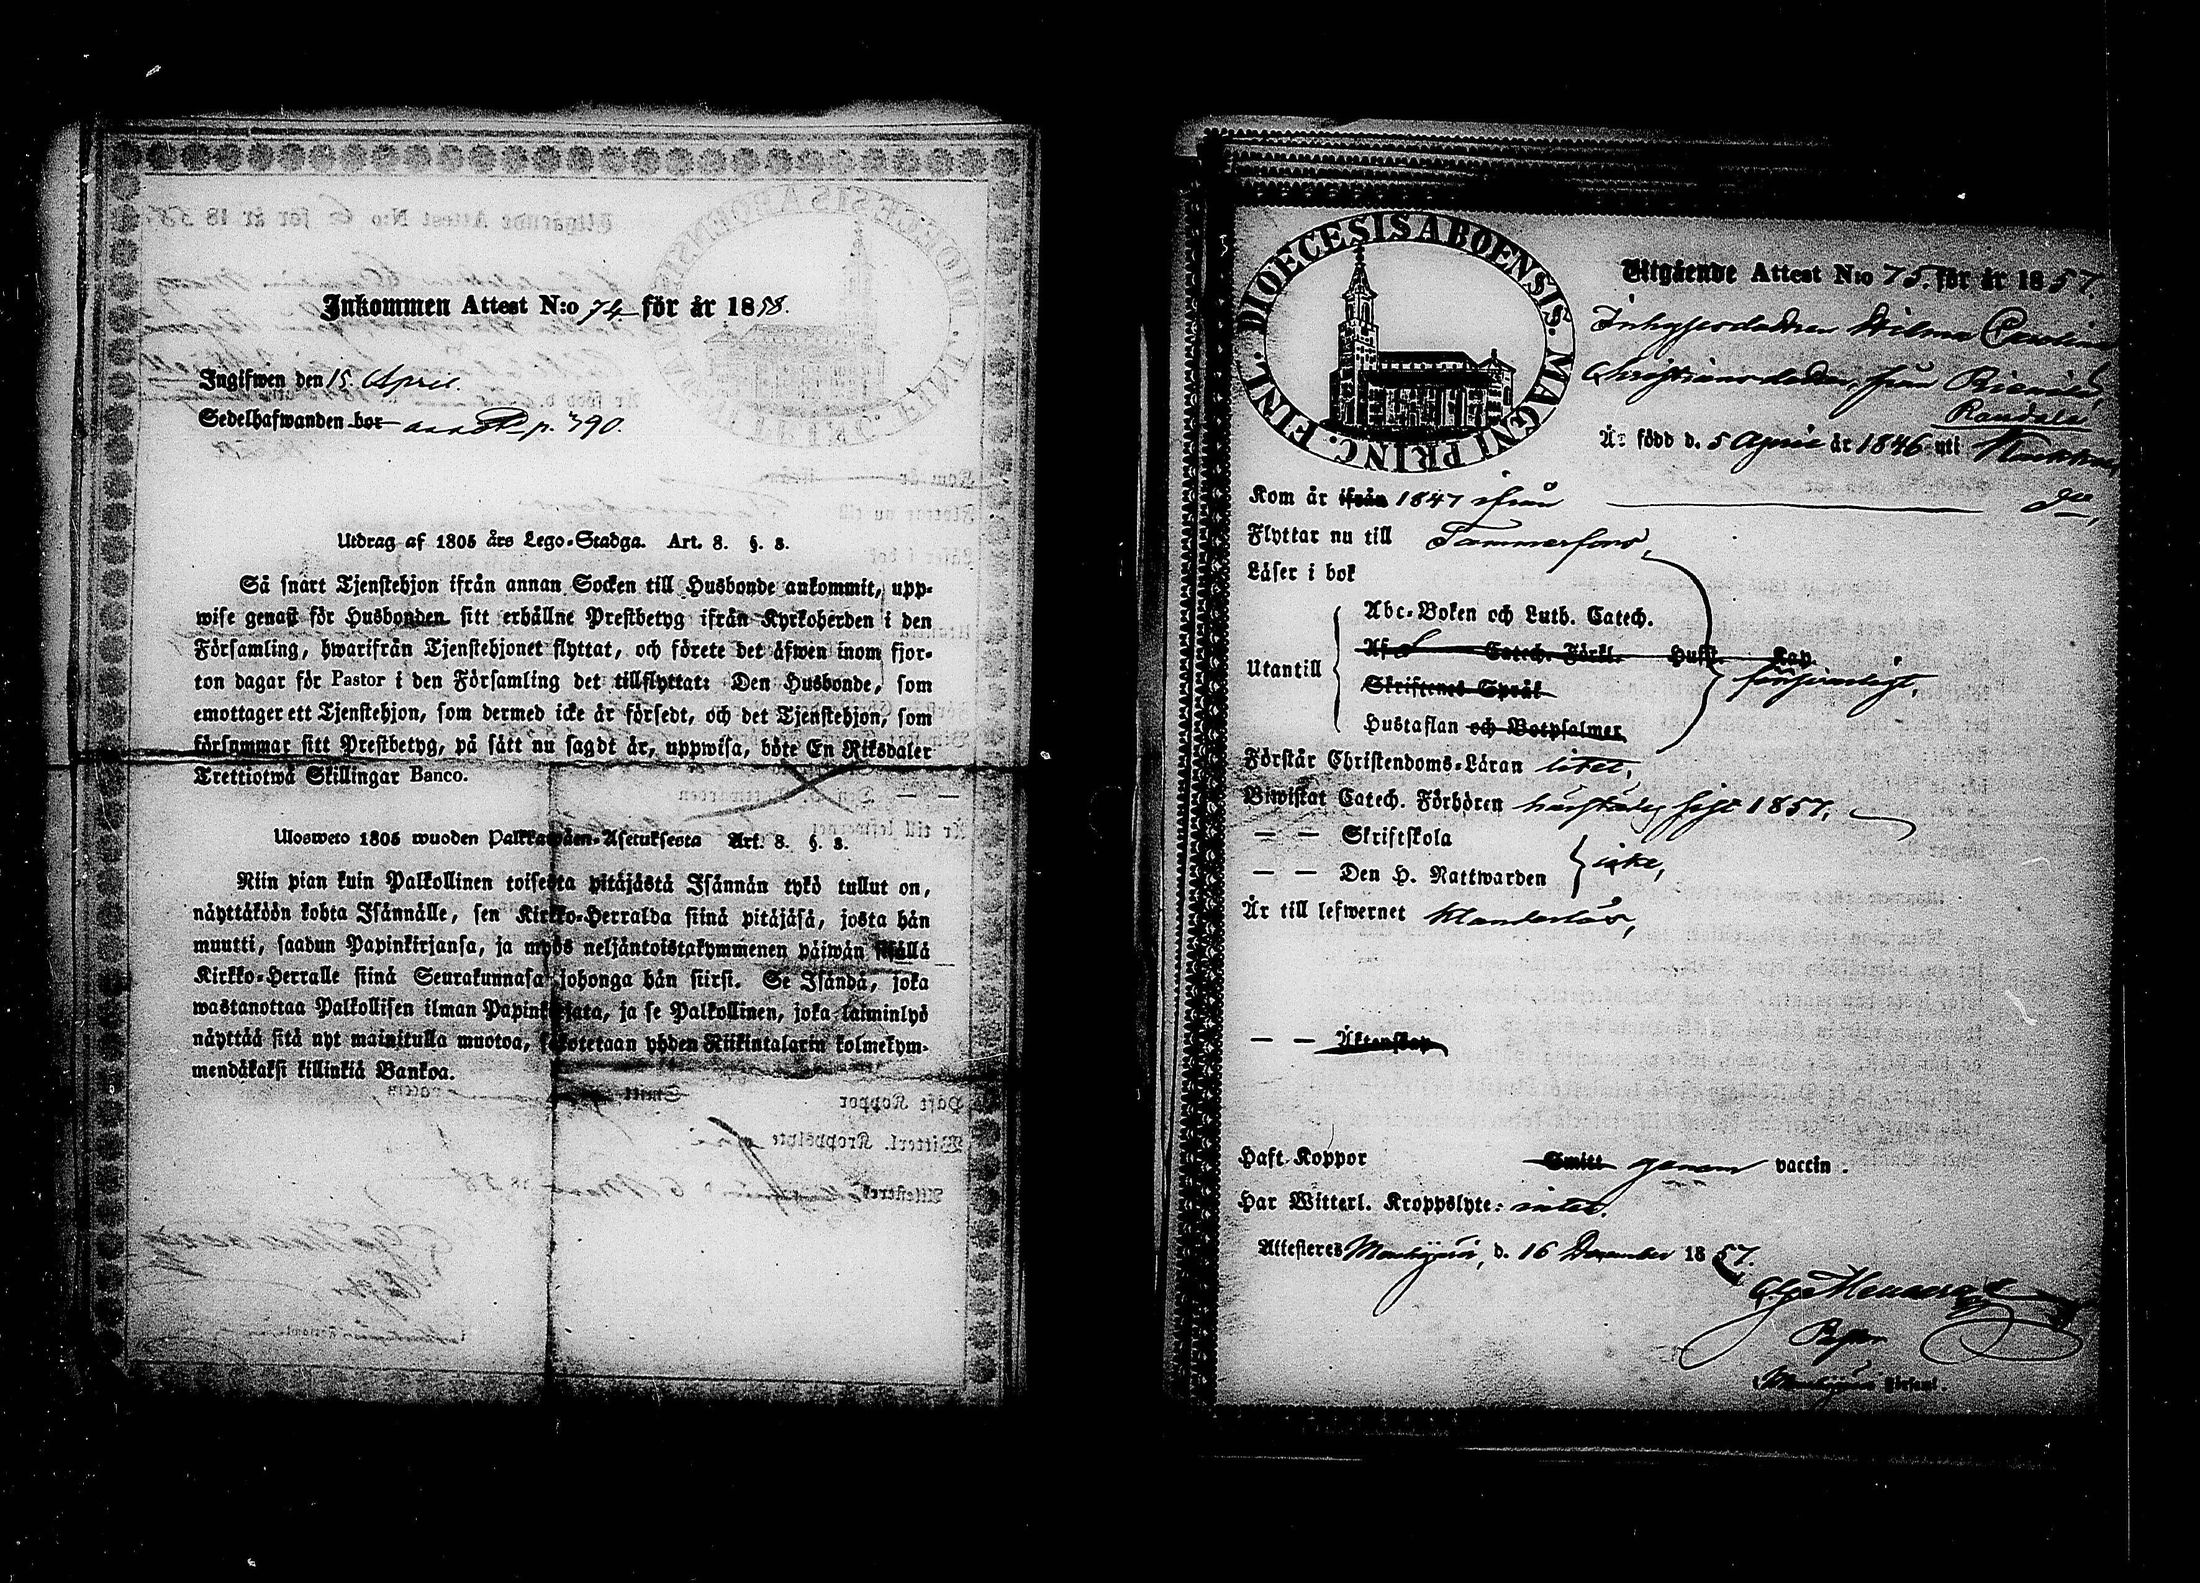 Inkommen Attest N:o 74 för år 1858.
Ingifwen den 15 April.
Sedelhafwanden bor p. 390.
Utdrag af 1805 års Lego-Stadga. Art. 8. §. 3.
Så snart Tjenstehjon ifrån annan Socken till Husbonde ankommit, upp-
wise genast för Husbonden sitt erhållne Prestbetyg ifrån Kyrkoherden i den
Församling, hwarifrån Tjenstehjonet flyttat, och förete det äfwen inom fjor-
ton dagar för Pastor i den Församling det tillflyttat: Den Husbonde, som
emottager ett Tjenstehjon, som dermed icke är försedt, och det Tjenstehjon, som
försummar sitt Prestbetyg, på sätt nu sagdt är, uppwisa, böte En Riksdaler
Trettiotwå Skillingar Banco.
Ulosweto 1805 wuoden Palkkawäen-Asetuksesta Art. 8. §. 3.
Niin pian kuin Palkollinen toisesta pitäjästä Isännän tykö tullut on,
näyttäköön kohta Isännälle, sen Kirkko-Herralda siinä pitäjäsä, josta hän
muutti, saadun Papinkirjansa, ja myös neljäntoistakymmenen päiwän sisällä
Kirkko-Herralle siinä Seurakunnasa johonga hän siirst. Se Isändä, joka
wastanottaa Palkollisen ilman Papinkirjata, ja se Palkollinen, joka laiminlyö
näyttää sitä nyt mainitulla muotoa, sakotetaan yhden Riikintalarin kolmekym-
mendäkaksi killinkiä Bankoa.
DIOECESIS ABOENSIS. MAGNI PRINC. FINL.
Utgående Attest N:o 75. för år 1857.
Inhysesdottren Wilma Carolina
Christiansdotter, från
Är född d. 5 April år 1846 uti
Kom år ifrån 1847 ifrån
Flyttar nu till Tammerfors,
Läser i bok
Utantill
Abc-Boken och Luth. Catech.
Af Catech. Förkl. Husst. Kap.
Skriftenes Språk
försvarligt,
Hustaflan och Botpsalmer
Förstår Christendoms-Läran litet,
Biwistat Catech. Förhören sist 1857.
— — Skriftskola
— — Den H. Nattwarden icke,
Är till lefwernet klanderlös,
— — Äktenskap
Haft Koppor Smitt genom vaccin.
Har Witterl. Kroppslyte: intet.
Attesteres d. 16 December 1857.